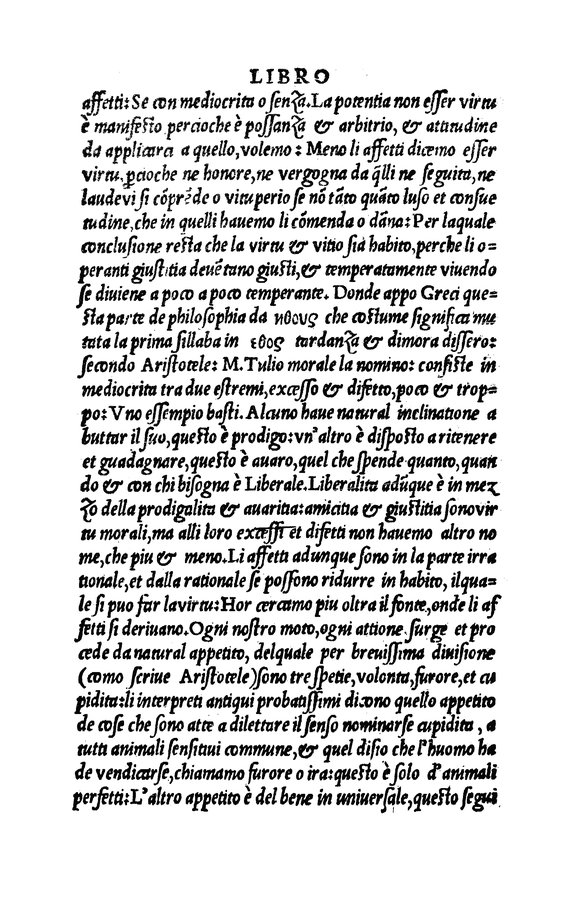 LIBRO
affetti: Se con mediocrita o senza. La potentia non esser virtu
è manifesto percioche è possanza & arbitrio, & attitudine
da applicarci a quello, volemo: Meno li affetti dicemo esser
virtu, ꝑcioche ne honore, ne vergogna da q̃lli ne seguita, ne
laude vi si cõprẽde o vituperio se nõ tãto quãto l'uso et consue
tudine, che in quelli hauemo li cõmenda o dãna: Per la quale
conclusione resta che la virtu & vitio sia habito, perche li o=
peranti giustitia deuẽtano giusti, & temperatamente viuendo
se diuiene a poco a poco temperante. Donde appo Greci que=
sta parte de philosophia da ηθους che costume significa mu
tata la prima sillaba in εθος tardanza & dimora dissero:
secondo Aristotele: M. Tulio morale la nomino: consiste in
mediocrita tra due estremi, excesso & difetto, poco & trop=
po: Vno essempio basti. Alcuno haue natural inclinatione a
buttar il suo, questo è prodigo: vn'altro è disposto a ritenere
et guadagnare, questo è auaro, quel che spende quanto, quan
do & con chi bisogna è Liberale. Liberalita adũque è in mez
zo della prodigalita & auaritia: amicitia & giustitia sono vir
tu morali, ma alli loro excessi et difetti non hauemo altro no
me, che piu & meno. Li affetti adunque sono in la parte irra
tionale, et dalla rationale se possono ridurre in habito, il qua=
le si puo far la virtu: Hor cercamo piu oltra il fonte, onde li af
fetti si deriuano. Ogni nostro moto, ogni attione surge et pro
cede da natural appetito, del quale per breuissima diuisione
(como scriue Aristotele) sono tre spetie, volonta, furore, et cu
pidita: li interpreti antiqui probatissimi dicono quello appetito
de cose che sono atte a dilettare il senso nominarse cupidita, a
tutti animali sensitiui commune, & quel disio che l'huomo ha
de vendicarse, chiamamo furore o ira: questo è solo d'animali
perfetti: L'altro appetito è del bene in uniuersale, questo segui